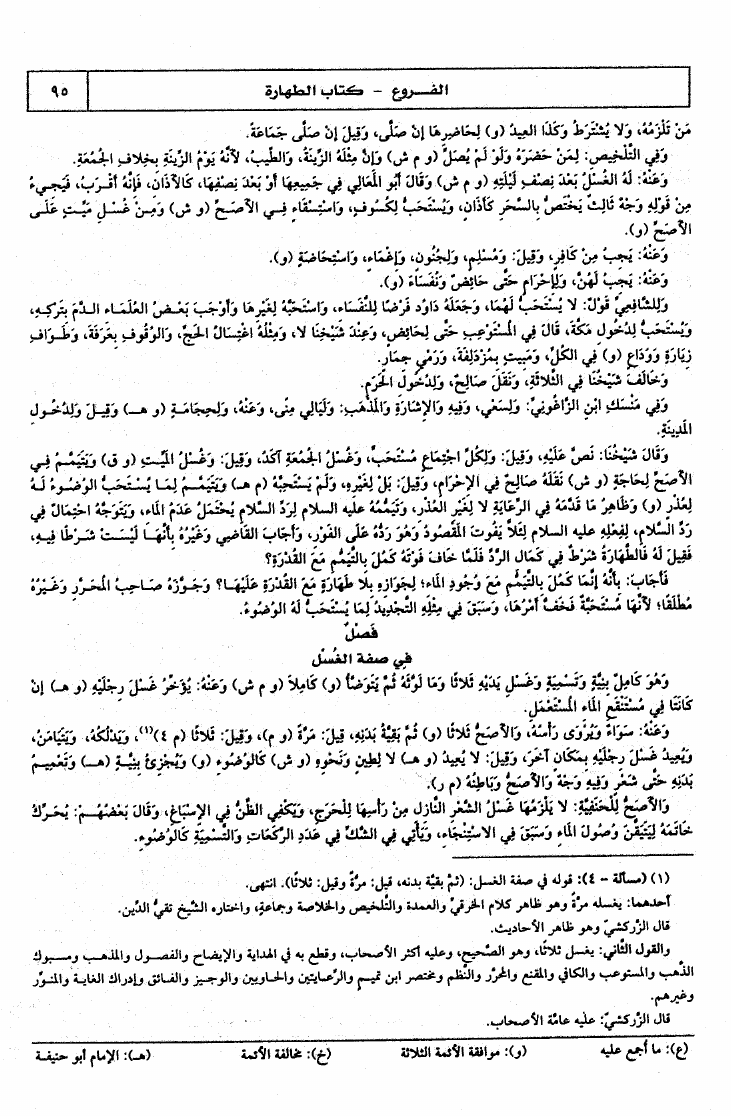 الفروع - كتاب الطهارة ٩٥
مَنْ تَلْزَمُهُ، وَلا يُشْتَرَطُ وَكَذَا العِيدُ (و) لِحَاضِرِهَا إنْ صَلَّى، وَقِيلَ إنْ صَلَّى جَمَاعَةً.
وَفِي التَّلْخِيصِ: لِمَنْ حَضَرَهُ وَلَوْ لَمْ يُصَلِّ (و م ش) وَإِنَّ مِثْلَهُ الزِّينَةُ، وَالطِّيبُ، لأَنَّهُ يَوْمُ الزِّينَةِ بِخِلافِ الْجُمُعَةِ.
وَعَنْهُ: لَهُ الغُسْلُ بَعْدَ نِصْفِ لَيْلَتِهِ (و م ش) وَقَالَ أَبُو الْمَعَالِي فِي جَمِيعِهَا أَوْ بَعْدَ نِصْفِهَا، كَالأَذَانِ، فَإِنَّهُ أَقْرَبُ، فَيَجِيءُ
مِنْ قَوْلِهِ وَجْهٌ ثَالِثٌ يَخْتَصُّ بِالسَّحَرِ كَأَذَانٍ، وَيُسْتَحَبُّ لِكُسُوفٍ، وَاسْتِسْقَاءٍ فِي الأَصَحِّ (و ش) وَمِنْ غُسْلِ مَيِّتٍ عَلَى
الأَصَحِّ (و).
وَعَنْهُ: يَجِبُ مِنْ كَافِرٍ، وَقِيلَ: وَمُسْلِمٍ، وَلِجُنُونٍ، وَإِغْمَاءٍ، وَاسْتِحَاضَةٍ (و).
وَعَنْهُ: يَجِبُ لَهُنَّ، وَلِإِحْرَامٍ حَتَّى حَائِضٌ وَنُفَسَاءُ (و).
وَلِلشَّافِعِيِّ قَوْلٌ: لا يُسْتَحَبُّ لَهُمَا، وَجَعَلَهُ دَاوُد فَرْضًا لِلنُّفَسَاءِ، وَاسْتَحَبَّهُ لِغَيْرِهَا وَأَوْجَبَ بَعْضُ العُلَمَاءِ الدَّمَ بِتَرْكِهِ،
وَيُسْتَحَبُّ لِدُخُولِ مَكَّةَ، قَالَ فِي الْمُسْتَوْعِبِ حَتَّى لِحَائِضٍ، وَعِنْدَ شَيْخِنَا لا، وَمِثْلُهُ اغْتِسَالُ الحَجِّ، وَالوُقُوفِ بِعَرَفَةَ، وَطَوَافِ
زِيَارَةٍ وَوَدَاعٍ (و) فِي الكُلِّ، وَمَبِيتٍ بِمُزْدَلِفَةَ، وَرَمْيِ جِمَارٍ.
وَخَالَفَ شَيْخُنَا فِي الثَّلاثَةِ، وَنَقَلَ صَالِحٌ، وَلِدُخُولِ الحَرَمِ.
وَفِي مَنْسَكِ ابْنِ الزَّاغُونِيِّ: وَلِسَعْيٍ، وَفِيهِ وَالإِشَارَةِ وَالْمَذْهَبِ: وَلَيَالِي مِنًى، وَعَنْهُ، وَلِحِجَامَةٍ (و هـ) وَقِيلَ وَلِدُخُولِ
الْمَدِينَةِ.
وَقَالَ شَيْخُنَا: نَصَّ عَلَيْهِ، وَقِيلَ: وَلِكُلِّ اجْتِمَاعٍ مُسْتَحَبٍّ، وَغُسْلُ الجُمُعَةِ آكَدُ، وَقِيلَ: وَغُسْلُ الْمَيِّتِ (و ق) وَيَتَيَمَّمُ فِي
الأَصَحِّ لِحَاجَةٍ (و ش) نَقَلَهُ صَالِحٌ فِي الإِحْرَامِ، وَقِيلَ: بَلْ لِغَيْرِهِ، وَلَمْ يَسْتَحِبَّهُ (م هـ) وَيَتَيَمَّمُ لِمَا يُسْتَحَبُّ الوُضُوءُ لَهُ
لِعُذْرٍ (و) وَظَاهِرُ مَا قَدَّمَهُ فِي الرِّعَايَةِ لا لِغَيْرِ العُذْرِ، وَتَيَمُّمُهُ عليه السلام لِرَدِّ السَّلامِ يُحْتَمَلُ عَدَمُ الْمَاءِ، وَيَتَوَجَّهُ احْتِمَالٌ فِي
رَدِّ السَّلامِ، لِفِعْلِهِ عليه السلام لِئَلاَّ يَفُوتَ الْمَقْصُودُ وَهُوَ رَدُّهُ عَلَى الفَوْرِ، وَأَجَابَ القَاضِي وَغَيْرُهُ بِأَنَّهَا لَيْسَتْ شَرْطًا فِيهِ،
فَقِيلَ لَهُ فَالطَّهَارَةُ شَرْطٌ فِي كَمَالِ الرَّدِّ فَلَمَّا خَافَ فَوْتَهُ كَمُلَ بِالتَّيَمُّمِ مَعَ القُدْرَةِ؟
فَأَجَابَ: بِأَنَّهُ إنَّمَا كَمُلَ بِالتَّيَمُّمِ مَعَ وُجُودِ الْمَاءِ؛ لِجَوَازِهِ بِلا طَهَارَةٍ مَعَ القُدْرَةِ عَلَيْهَا؟ وَجَوَّزَهُ صَاحِبُ الْمُحَرَّرِ وَغَيْرُهُ
مُطْلَقًا؛ لأَنَّهَا مُسْتَحَبَّةٌ فَخَفَّ أَمْرُهَا، وَسَبَقَ فِي مِثْلِهِ التَّجْدِيدُ لِمَا يُسْتَحَبُّ لَهُ الوُضُوءُ.
فَصْلٌ
في صفة الغُسْل
وَهُوَ كَامِلٌ بِنِيَّةٍ وَتَسْمِيَةٍ وَغَسْلِ يَدَيْهِ ثَلاثًا وَمَا لَوَّثَهُ ثُمَّ يَتَوَضَّأُ (و) كَامِلاً (و م ش) وَعَنْهُ: يُؤَخِّرُ غَسْلَ رِجْلَيْهِ (و هـ) إنْ
كَانَتَا فِي مُسْتَنْقَعِ الْمَاءِ الْمُسْتَعْمَلِ.
وَعَنْهُ: سَوَاءً وَيُرْوَى رَأْسُهُ، وَالأَصَحُّ ثَلاثًا (و) ثُمَّ بَقِيَّةُ بَدَنِهِ، قِيلَ: مَرَّةً (و م)، وَقِيلَ: ثَلاثًا (م ٤)(١)، وَيَدْلُكُهُ، وَيَتَيَامَنُ،
وَيُعِيدُ غَسْلَ رِجْلَيْهِ بِمَكَانٍ آخَرَ، وَقِيلَ: لا يُعِيدُ (و هـ) لا لِطِينٍ وَنَحْوِهِ (و ش) كَالوُضُوءِ (و) وَيُجْزِئُ بِنِيَّةٍ (هـ) وَتَعْمِيمُ
بَدَنِهِ حَتَّى شَعْرٍ وَفِيهِ وَجْهٌ وَالأَصَحُّ وَبَاطِنُهُ (م ر).
وَالأَصَحُّ لِلْحَنَفِيَّةِ: لا يَلْزَمُهَا غَسْلُ الشَّعْرِ النَّازِلِ مِنْ رَأْسِهَا لِلْحَرَجِ، وَيَكْفِي الظَّنُّ فِي الإِسْبَاغِ، وَقَالَ بَعْضُهُمْ: يُحَرِّكُ
خَاتَمَهُ لِيَتَيَقَّنَ وُصُولَ الْمَاءِ وَسَبَقَ فِي الاسْتِنْجَاءِ، وَيَأْتِي فِي الشَّكِّ فِي عَدَدِ الرَّكَعَاتِ وَالتَّسْمِيَةُ كَالوُضُوءِ.
(١) (مسألة - ٤): قوله في صفة الغسل: (ثمَّ بقيَّة بدنه، قيل: مرَّةً وقيل: ثلاثًا). انتهى.
أحدهما: يغسله مرةً وهو ظاهر كلام الخرقيِّ والعمدة والتَّلخيص والخلاصة وجماعةٍ، واختاره الشَّيخ تقيُّ الدِّين.
قال الزَّركشيُّ وهو ظاهر الأحاديث.
والقول الثَّاني: يغسل ثلاثًا، وهو الصَّحيح، وعليه أكثر الأصحاب، وقطع به في الهداية والإيضاح والفصول والمذهب ومسبوك
الذَّهب والمستوعب والكافي والمقنع والمحرَّر والنَّظم ومختصر ابن تميم والرِّعايتين والحاويين والوجيز والفائق وإدراك الغاية والمنوَّر
وغيرهم.
قال الزَّركشيُّ: عليه عامَّة الأصحاب.
(ع): ما أجمع عليه (و): موافقة الأئمة الثلاثة (خ): مخالفة الأئمة (هـ): الإمام أبو حنيفة